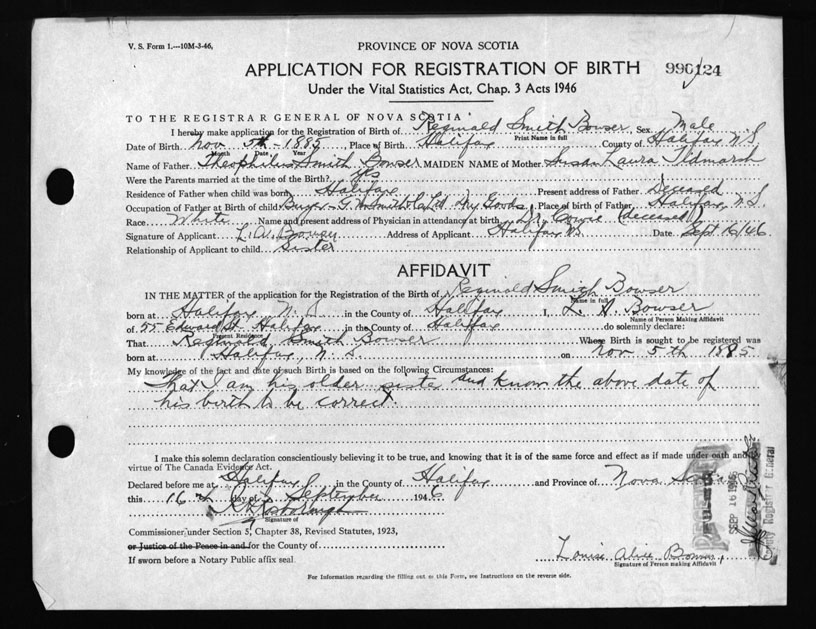 V. S. Form 1.—10M-3-46.
PROVINCE OF NOVA SCOTIA
APPLICATION FOR REGISTRATION OF BIRTH
990124
Under the Vital Statistics Act, Chap. 3 Acts 1946
TO THE REGISTRAR GENERAL OF NOVA SCOTIA
I hereby make application for the Registration of Birth of Reginald Smith Bowser, Sex Male
Print Name in full
Date of Birth Nov 5th - 1885 Place of Birth Halifax County of Halifax N.S
Month Date Year
Name of Father Theophilus Smith Bowser MAIDEN NAME of Mother Susan Laura Tidmarsh
Were the Parents married at time of the Birth? Yes
Residence of Father when child was born Halifax Present address of Father Deceased
Occupation of Father at Birth of child Buyer - G. M. Smith Co Ltd. Dry Goods Place of birth of Father Halifax, N.S.
Race White Name and present address of Physician in attendance at birth Dr. Cowie (deceased)
Signature of Applicant L. A. Bowser Address of Applicant Halifax N.S. Date Sept 16/46
Relationship of Applicant to child Sister
AFFIDAVIT
IN THE MATTER of the application for the Registration of the Birth of Reginald Smith Bowser
Name in full
born at Halifax N. S in the County of Halifax I, L. A. Bowser
Name of Person Making Affidavit
of 55 Edward St Halifax in the County of Halifax do solemnly declare:
Present Residence
That Reginald Smith Bowser Whose Birth is sought to be registered was
born at Halifax, N. S. on Nov 5th 1885
My knowledge of the fact and date of such Birth is based on the following Circumstances:
That I am his older sister and know the above date of
his birth to be correct.
I make this solemn declaration conscientiously believing it to be true, and knowing that it is of the same force and effect as if made under oath and by
virtue of The Canada Evidence Act.
Declared before me at Halifax in the County of Halifax and Province of Nova Scotia
this 16th day of September 1946
Signature of
Commissioner under Section 5, Chapter 38, Revised Statutes, 1923,
or Justice of the Peace in and for the County of
If sworn before a Notary Public affix seal
Louise Alice Bowser
Signature of Person making Affidavit
SEP 16 1946
Deputy Registrar General
For Information regarding the filling out of this Form, see Instructions on the reverse side.